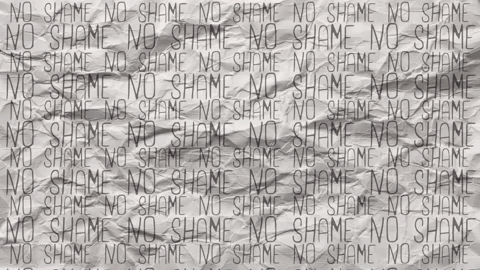 NO SHAME NO SHAME NO SHAME NO SHAME NO SHAME
NO SHAME NO SHAME NO SHAME NO SHAME
NO SHAME NO SHAME NO SHAME NO SHAME NO SHAME
NO SHAME NO SHAME NO SHAME NO SHAME
NO SHAME NO SHAME NO SHAME NO SHAME NO SHAME
NO SHAME NO SHAME NO SHAME NO SHAME
NO SHAME NO SHAME NO SHAME NO SHAME NO SHAME
NO SHAME NO SHAME NO SHAME NO SHAME
NO SHAME NO SHAME NO SHAME NO SHAME NO SHAME
NO SHAME NO SHAME NO SHAME NO SHAME
NO SHAME NO SHAME NO SHAME NO SHAME NO SHAME